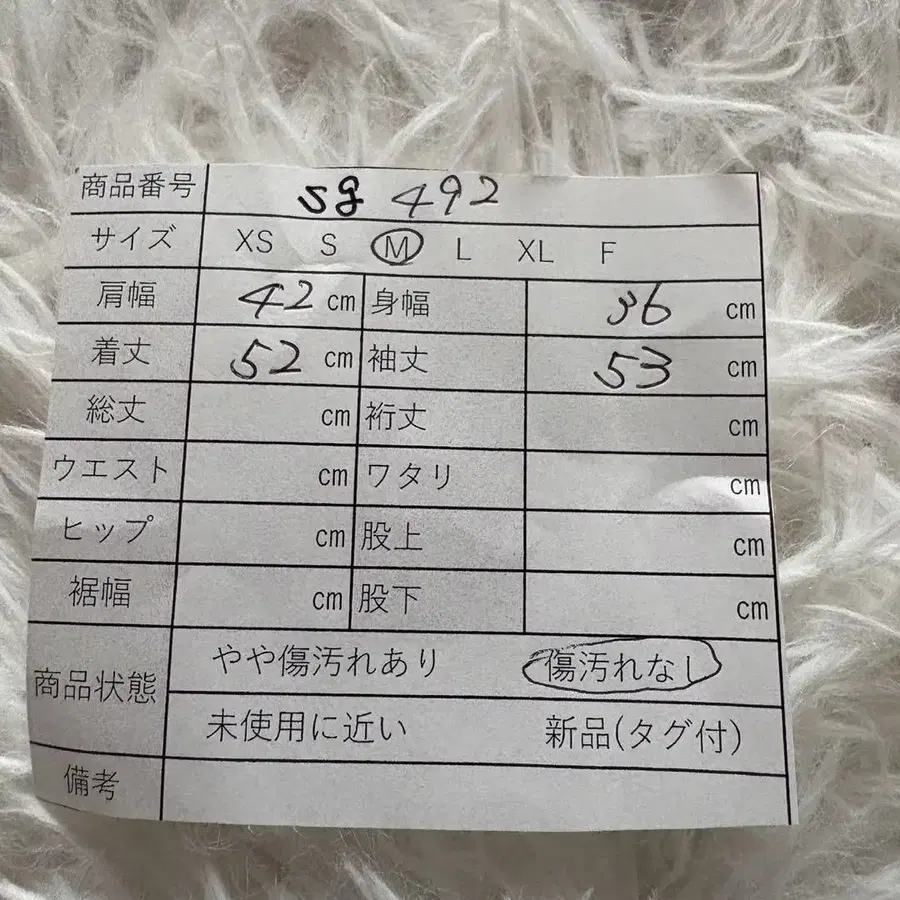 商品番号 sg 492
サイズ XS S M L XL F
肩幅 42 cm 身幅 36 cm
着丈 52 cm 袖丈 53 cm
総丈 cm 裄丈 cm
ウエスト cm ワタリ cm
ヒップ cm 股上 cm
裾幅 cm 股下 cm
商品状態 やや傷汚れあり 傷汚れなし
未使用に近い 新品(タグ付)
備考